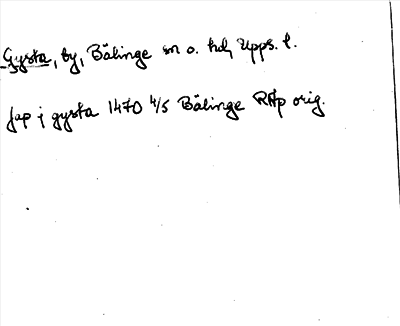 Gysta, by, Bälinge sn o. hd, Upps. l.
Jap i gysta 1470 4/5 Bälinge RAp orig.